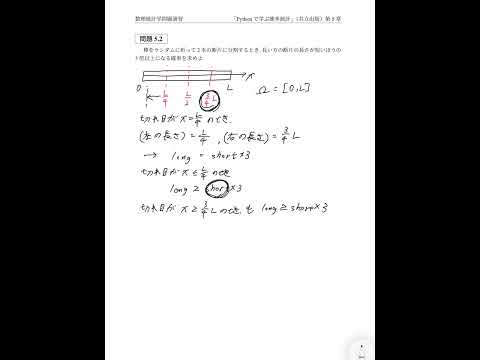 数理統計学問題演習 「Pythonで学ぶ確率統計」(共立出版)第5章
問題 5.2
棒をランダムに折って2本の断片に分割するとき,長い方の断片の長さが短いほうの
3倍以上になる確率を求めよ
x
0 L/4 L/2 3/4 L L
Ω = [0, L]
切れ目が x = L/4 のとき.
(左の長さ) = L/4 , (右の長さ) = 3/4 L
→ long = short×3
切れ目が x ≤ L/4 のとき
long ≥ short×3
切れ目が x ≥ 3/4 L のとき, も long ≥ short×3